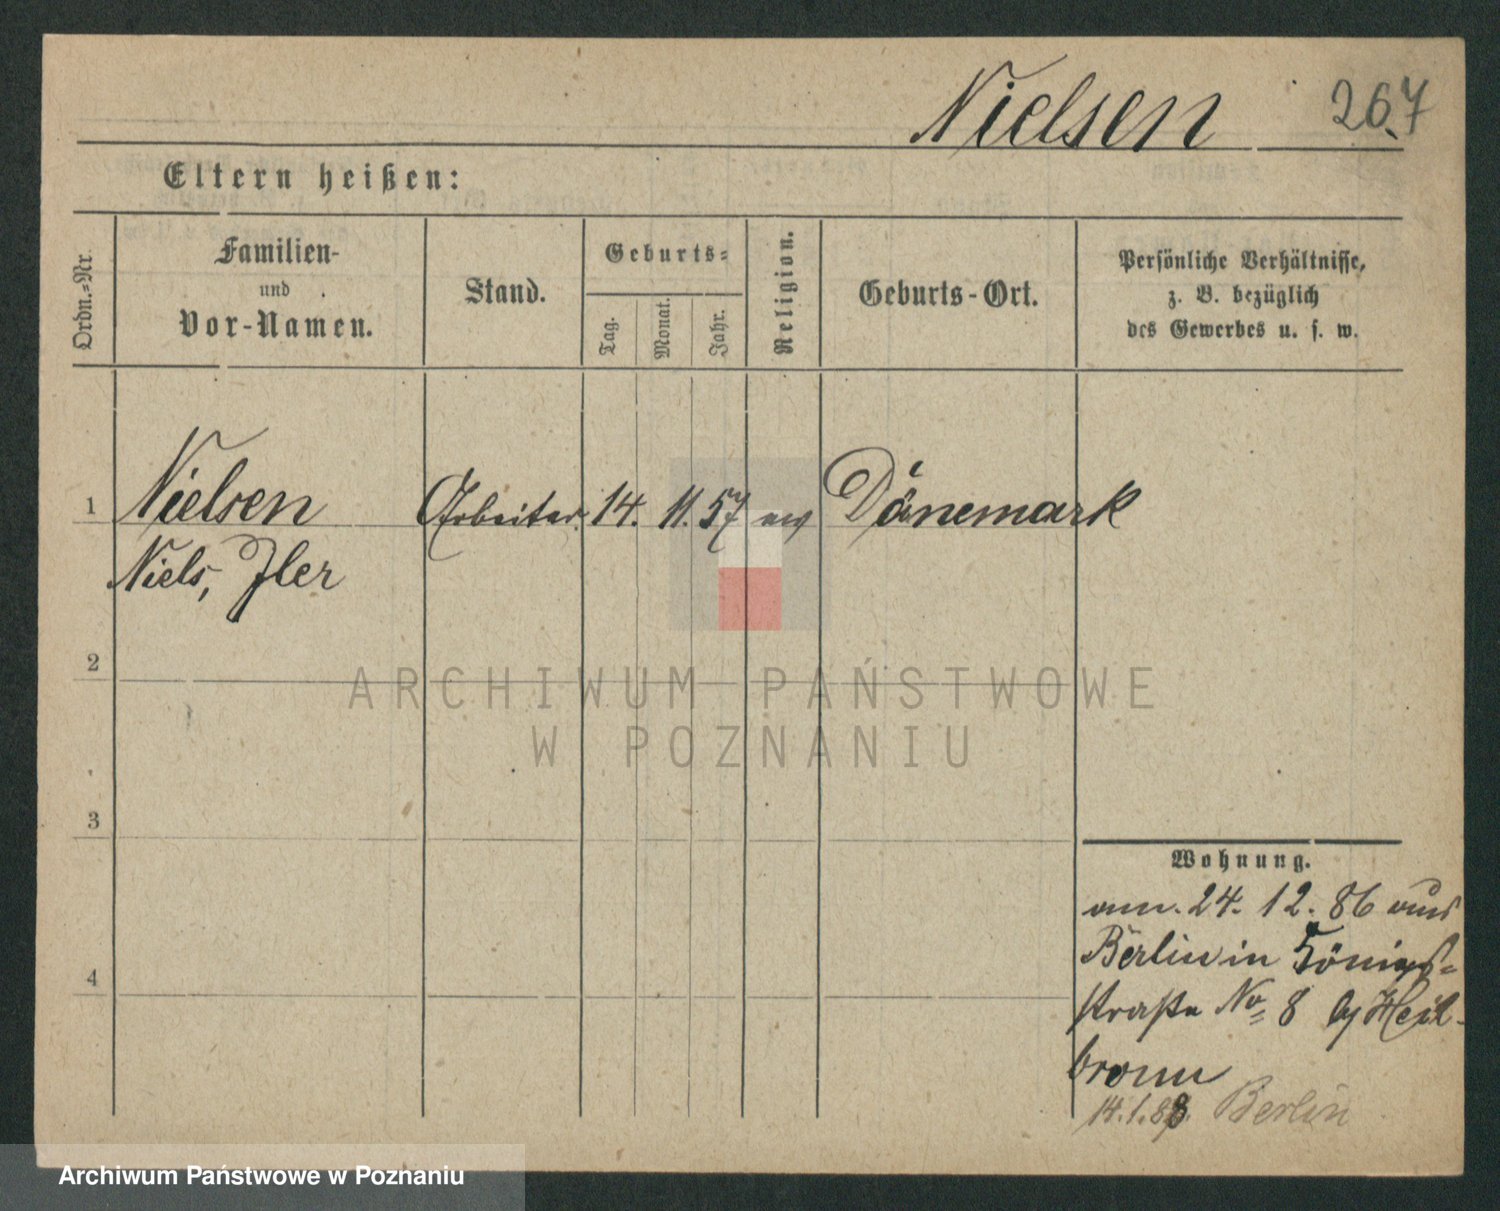 Nielsen 267
Eltern heißen:
Ordn.-Nr.
Familien-
und
Vor-Namen.
Stand.
Geburts-
Tag.
Monat.
Jahr.
Religion.
Geburts-Ort.
Persönliche Verhältnisse,
z. B. bezüglich
des Gewerbes u. s. w.
1 Nielsen Arbeiter 14. 11. 57 ev Dänemark
Niels, Iler
2
ARCHIWUM PAŃSTWOWE
W POZNANIU
3
Wohnung.
am. 24. 12. 86 aus
Berlin in Königs-
straße No 8 by Heil-
bronn
4
14.1.88. Berlin
Archiwum Państwowe w Poznaniu